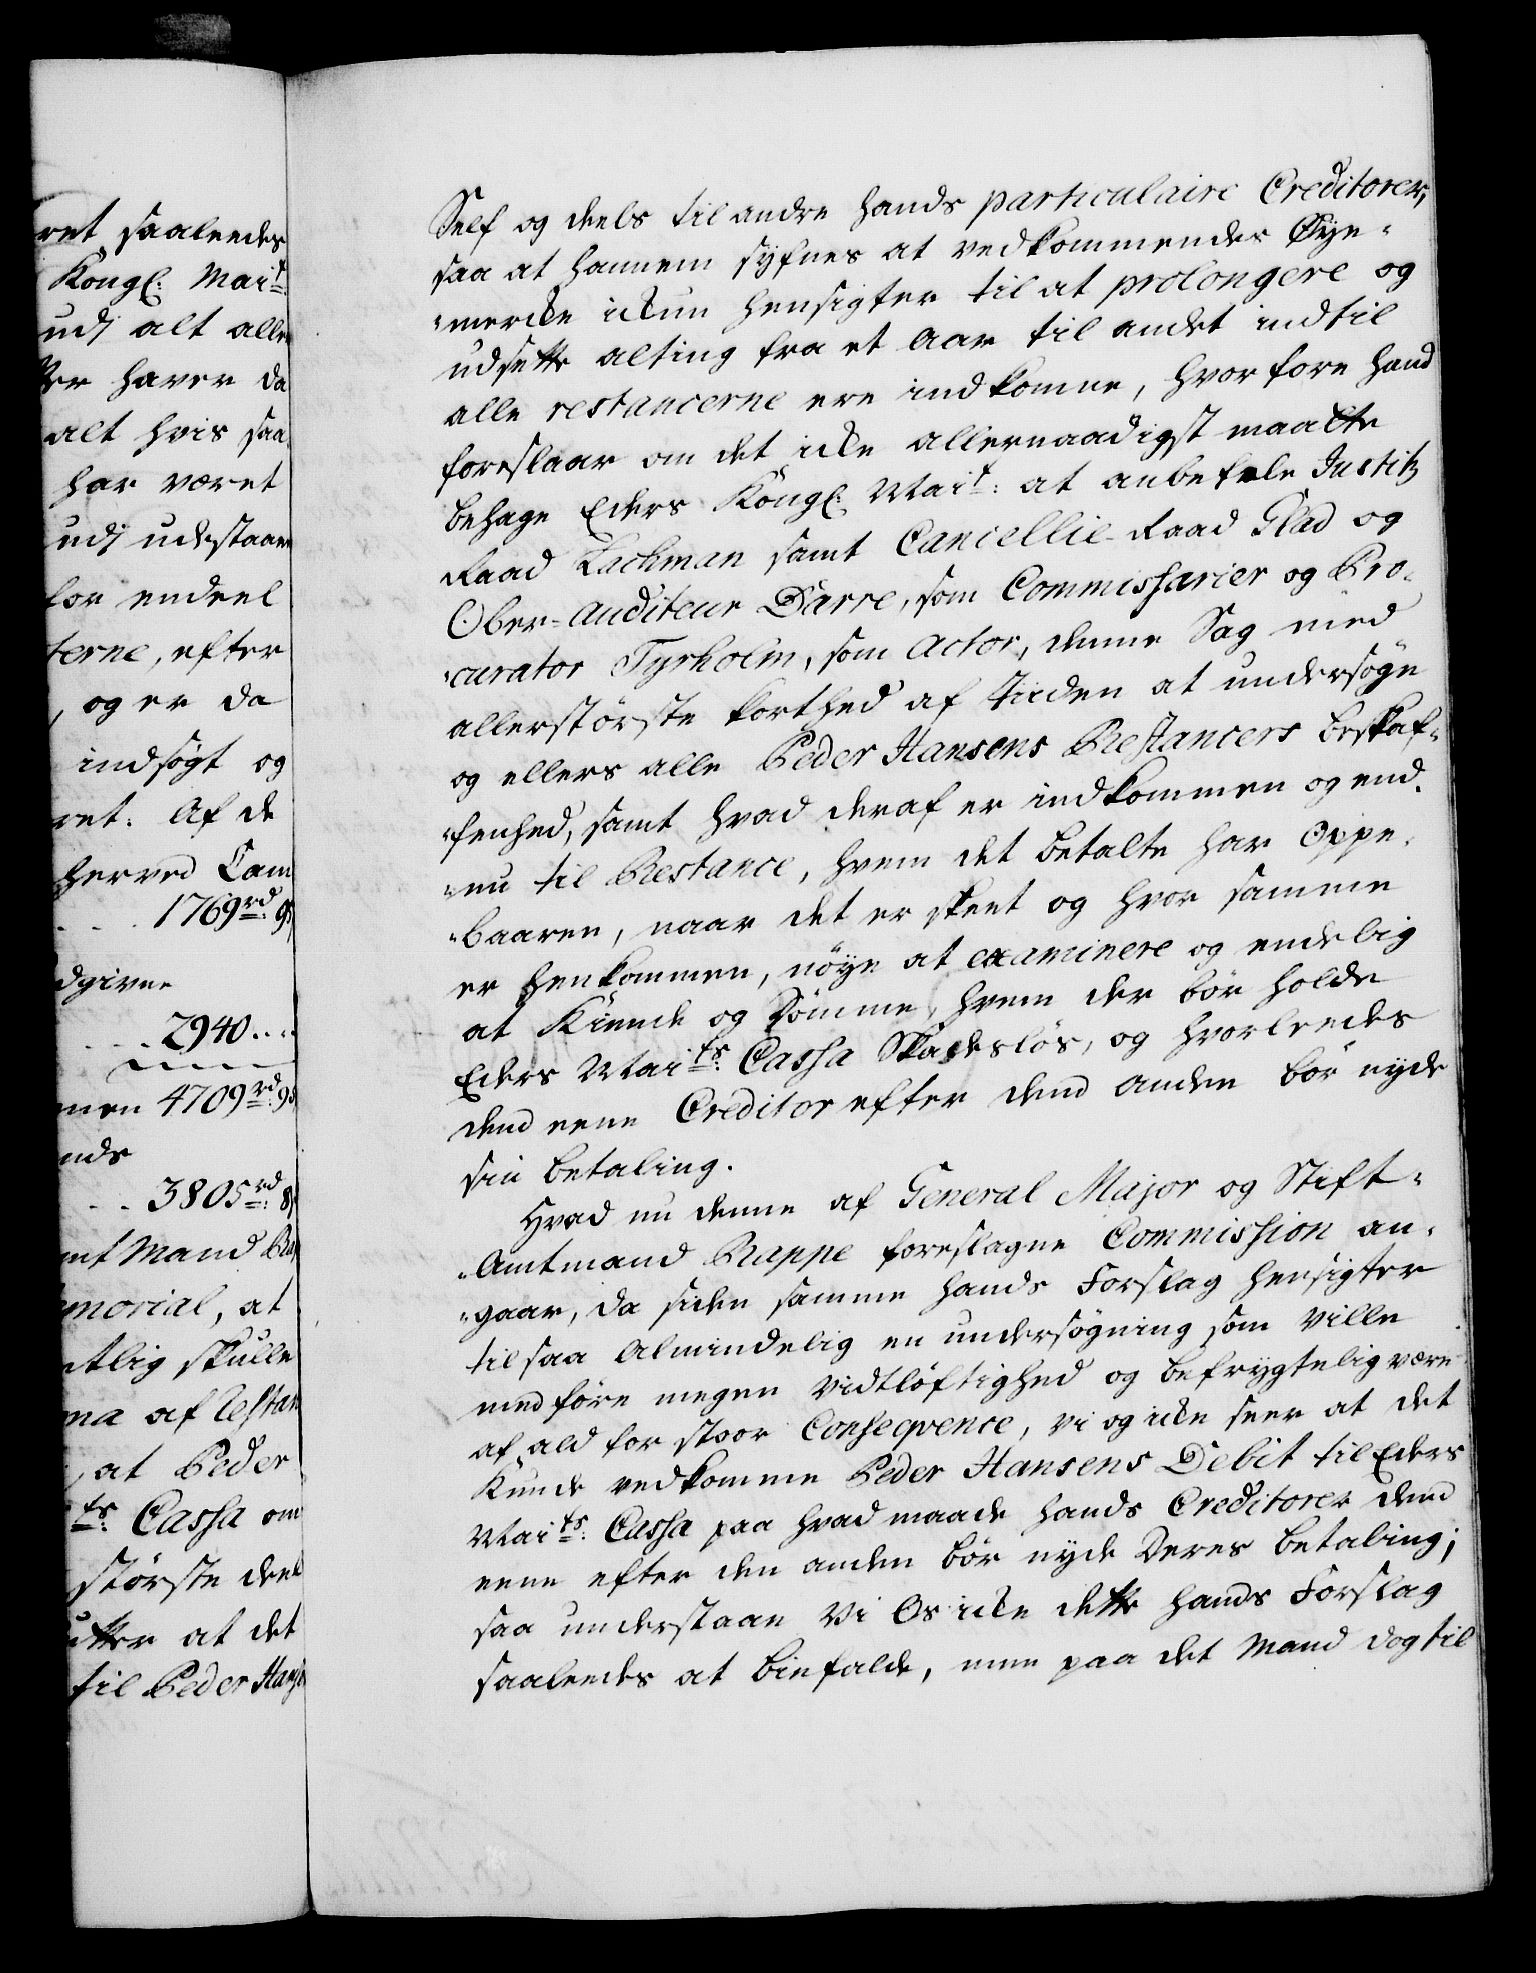 ret saaleedes
Kongl: Mait:
udj alt aller
er haver da
alt hvis saa
har været
udj udestaaen
for endeel
terne, efter
, og er da
indsögt og
ret. Af de
herred Cam
. . . 1769rd: 95
dgivne
. . . 2940....
men 4709rd: 95
nds
. . 3805rd: 8
mt Mand Ra
morial, at
tlig skulle
ma af Restan
, at Peder
ts: Cassa om
störste deel
utter at det
til Peder Hans
Self og deels til andre hands particulaire Creditorer,
saa at hannem syfnes at vedkommendes Øye-
-mercke ickun hensigter til at prolongere og
udsette alting fra et Aar til andet indtil
alle restancerne ere indkomne, hvorfore hand
foreslaar om det icke allernaadigst maatte
behage Eders Kongl: Mait: at anbefale Justitz
Raad Lachman samt Cancellie-Raad Glad og
Ober-Auditeur Darre, som Commissarier og Pro-
-curator Tyrholm, som Actor, denne Sag med
allerstörste korthed af Tiiden at undersöge
og ellers alle Peder Hansens Restancers beskaf-
-fenhed, samt hvad deraf er indkommen og end-
-nu til Restance, hvem det betalte har Oppe-
-baaren, naar det er skeet og hvor samme
er henkommen, nöye at examinere og endelig
at Kiende og Dömme, hvem der bör holde
Eders Maits: Cassa Skadeslös, og hvorleedes
dend eene Creditor efter dend anden bör nyde
sin betaling.
Hvad nu denne af General Major og Stift-
-Amtmand Rappe foreslagne Commission an-
-gaar, da siden samme hands Forslag hensigter
til saa Almindelig en undersögning som ville
medföre megen Vidtlöftighed og befrygtelig være
af ald for stoor Conseqvence, vi og icke seer at det
Kunde vedkomme Peder Hansens Debit til Eders
Maits: Cassa paa hvad maade hands Creditorer dend
eene efter den anden bör nyde Deres betaling;
saa understaae Vi Os icke dette hands Forslag
saaleedes at biefalde, men paa det Mand dog til